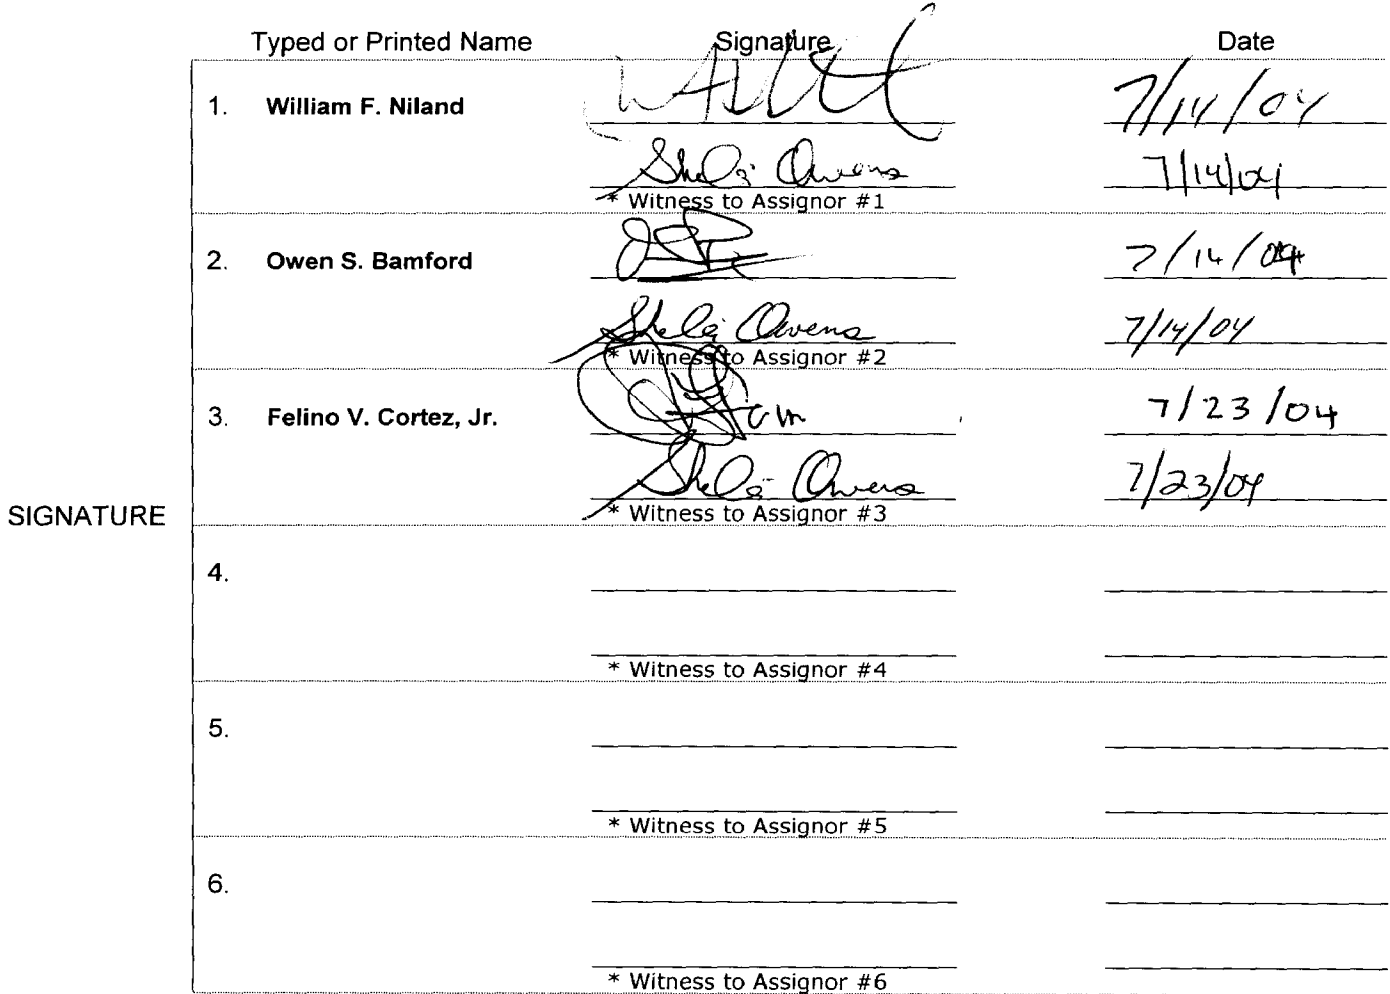 Typed or Printed Name Signature Date
1. William F. Niland 7/14/04
Shela Owens 7/14/04
* Witness to Assignor #1
2. Owen S. Bamford 7/14/04
Shela Owens 7/14/04
* Witness to Assignor #2
3. Felino V. Cortez, Jr. 7/23/04
Shela Owens 7/23/04
* Witness to Assignor #3
SIGNATURE
4.
* Witness to Assignor #4
5.
* Witness to Assignor #5
6.
* Witness to Assignor #6